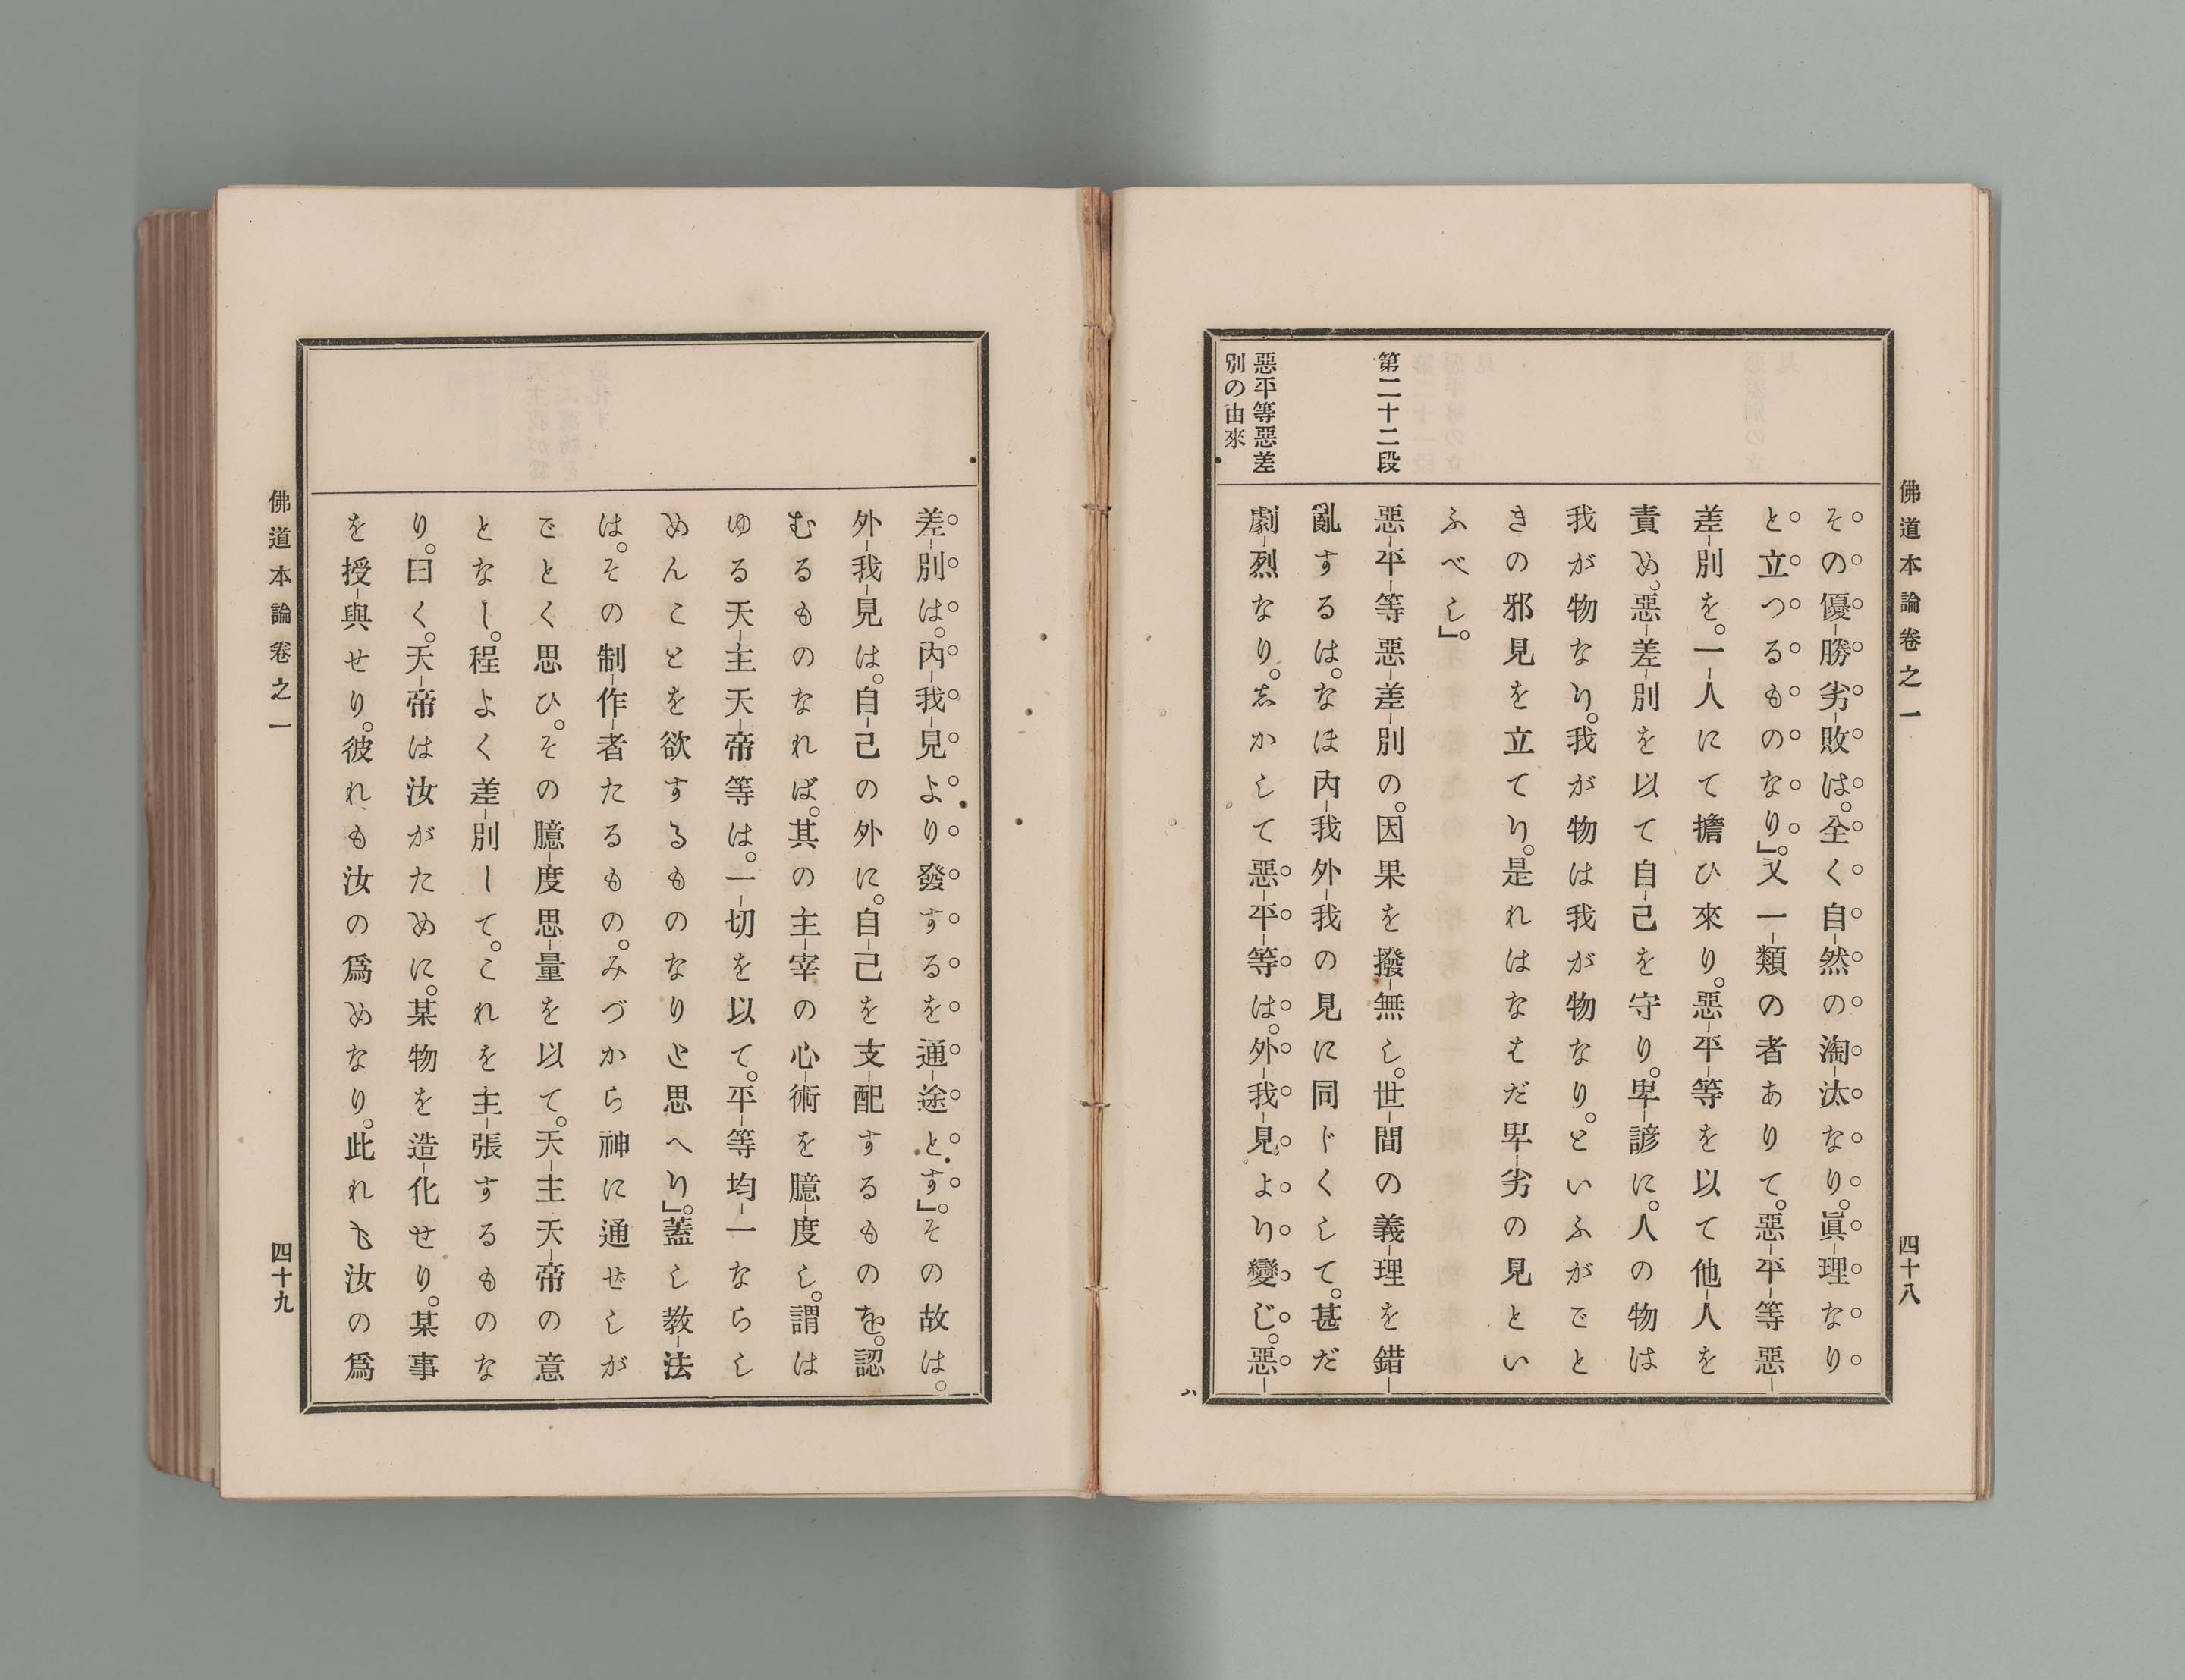 佛道本論卷之一
四十八
その優勝劣敗は。全く自然の淘汰なり。眞理なり
と立つるものなり」。又一類の者ありて。惡平等惡
差別を。一人にて擔ひ來り。惡平等を以て他人を
責め。惡差別を以て自己を守り。卑諺に。人の物は
我が物なり。我が物は我が物なり。といふがごと
きの邪見を立てり。是れはなはだ卑劣の見とい
ふべし」。
第二十二段
惡平等惡差別の。因果を撥無し。世間の義理を錯
亂するは。なほ內我外我の見に同じくして。甚だ
惡平等惡差
別の由來
劇烈なり。志かして惡平等は。外我見より變じ。惡
八
差別は。內我見より發するを通途とす」。その故は。
外我見は。自己の外に。自己を支配するものを。認
むるものなれば。其の主宰の心術を臆度し。謂は
ゆる天主天帝等は。一切を以て。平等均一ならし
めんことを欲するものなりと思へり」。蓋し敎法
は。その制作者たるもの。みづから神に通せしが
ごとく思ひ。その臆度思量を以て。天主天帝の意
となし。程よく差別して。これを主張するものな
り。曰く。天帝は汝がために。某物を造化せり。某事
を授與せり。彼れも汝の爲めなり。此れも汝の爲
佛道本論卷之一
四十九